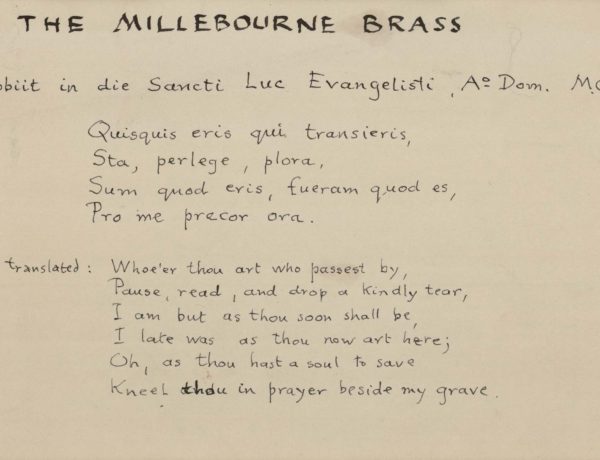 THE MILLEBOURNE BRASS
obiit in die Sancti Luc Evangelisti, Aº Dom. M.
Quisquis eris qui transieris,
Sta, perlege, plora,
Sum quod eris, fueram quod es,
Pro me precor ora.
translated: Whoe'er thou art who passest by,
Pause, read, and drop a kindly tear,
I am but as thou soon shall be,
I late was as thou now art here;
Oh, as thou hast a soul to save
Kneel thou in prayer beside my grave.